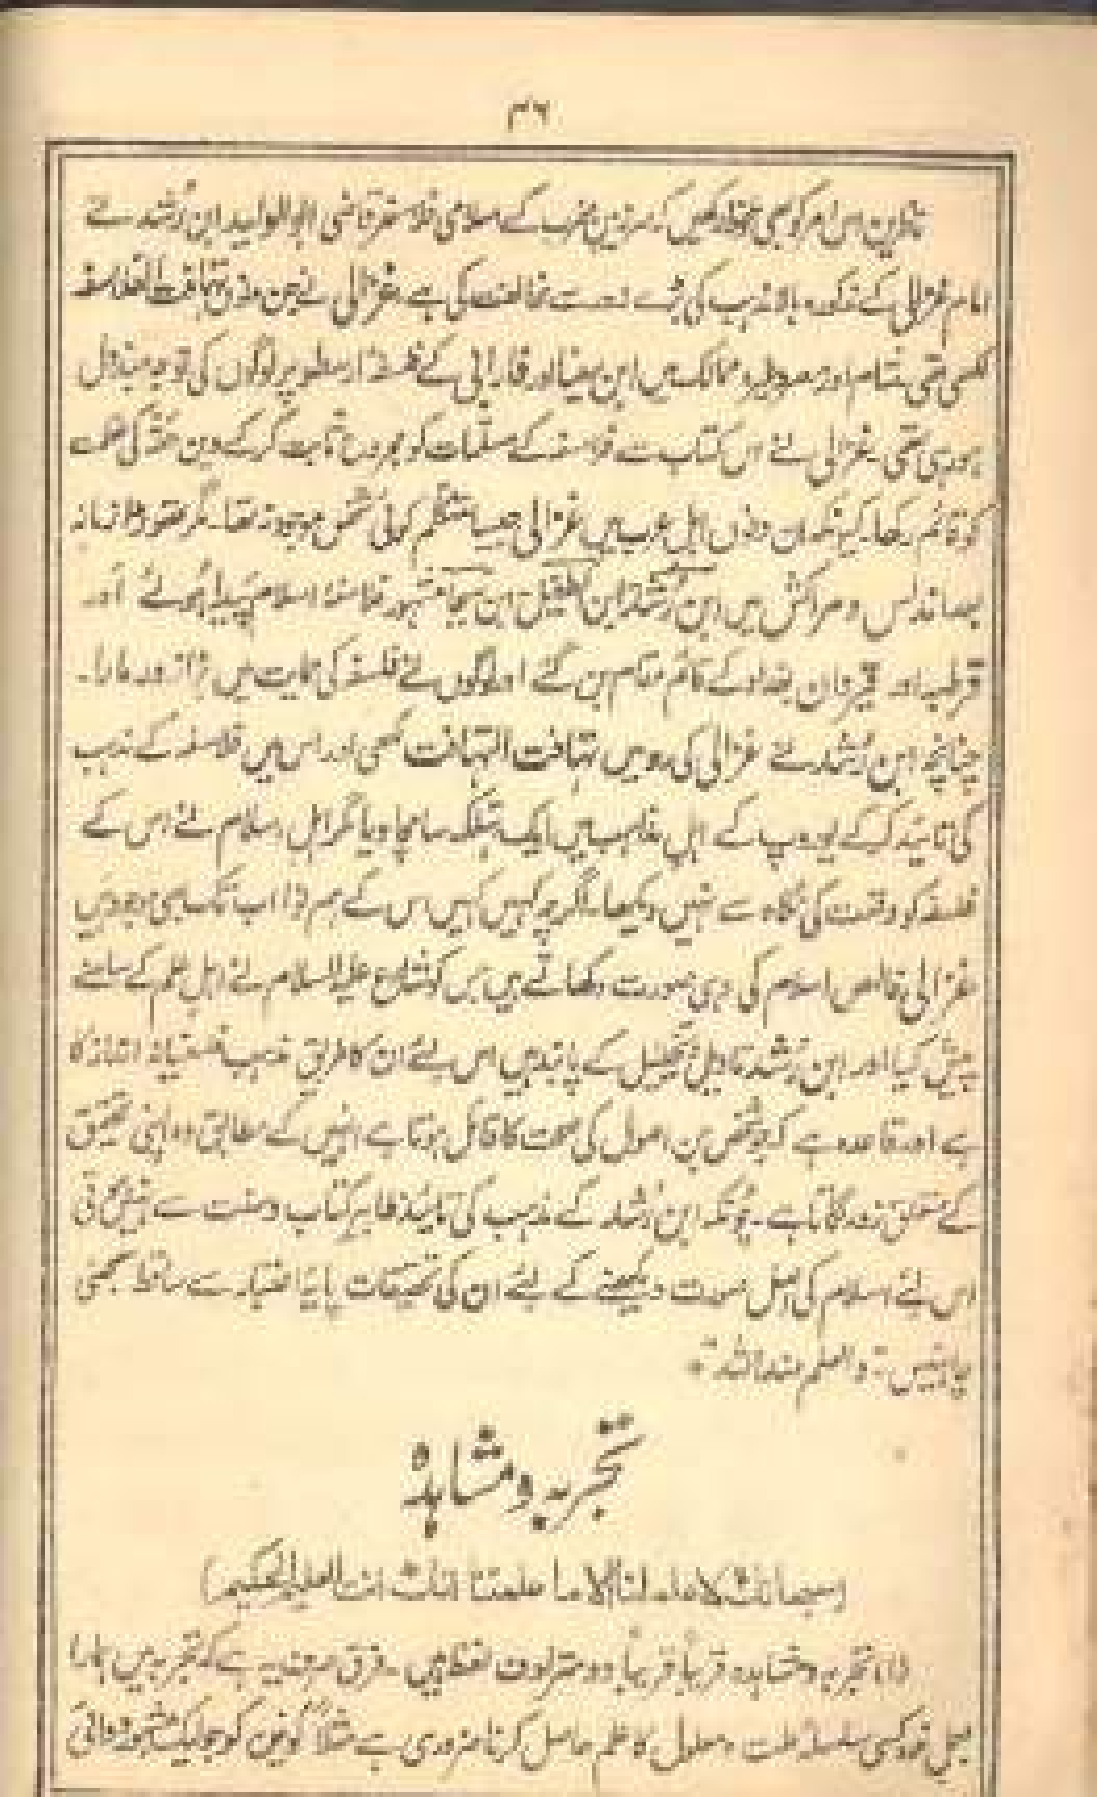 ۴۶
ناظرین اس امر کو بھی ملحوظ رکھیں کہ سرزمین مغرب کے اسلامی فلاسفر قاضی ابوالولید ابن رُشد نے
امام غزالی کے مذکورہ بالا مذہب کی بڑے زور سے مخالفت کی ہے غزالی نے جن دنوں تہافت الفلاسفہ
لکھی تھی شام اور مصر وغیرہ ممالک میں ابن سینا اور فارابی کے فلسفہ ارسطو پر لوگوں کی توجہ مبذول
ہو رہی تھی۔ غزالی نے اس کتاب سے فلاسفہ کے مسلّمات کو مجروح ثابت کر کے دین حقہ کی عظمت
کو قائم رکھا۔ کیونکہ ان دنوں اہل عرب میں غزالی جیسا متکلم کوئی شخص موجود نہ تھا۔ مگر تھوڑا زمانہ
بعد اندلس و مراکش میں ابن رُشد ابن طفیل ابن بیجا مشہور فلاسفۂ اسلام پیدا ہوئے اور
قرطبہ اور قیروان بغداد کے قائم مقام بن گئے اور لوگوں نے فلسفہ کی حمایت میں بڑا زور مارا۔
چنانچہ ابن رُشد نے غزالی کی رد میں تہافت التہافت لکھی اور اس میں فلاسفہ کے مذہب
کی تائید کر کے یوروپ کے اہل مذاہب میں ایک تہلکہ سا مچا دیا مگر اہل اسلام نے اس کے
فلسفہ کو وقعت کی نگاہ سے نہیں دیکھا۔ اگرچہ کہیں کہیں اس کے ہم نوا اب تک بھی موجود ہیں
غزالی خالص اسلام کی وہی صورت دکھاتے ہیں جس کو شارع علیہ السلام نے اہل علم کے سامنے
پیش کیا اور ابن رُشد تاویل کے پابند ہیں اس لئے ان کا طریق مذہب فلسفیانہ انداز کا
ہے اور قاعدہ ہے کہ جو شخص جن اصول کی صحت کا قائل ہوتا ہے انہیں کے مطابق وہ اپنی تحقیق
کے متعلق زور لگاتا ہے۔ چونکہ ابن رُشد کے مذہب کی تائید ظاہر کتاب و سنت سے نہیں ہوتی
اس لئے اسلام کی اصل صورت دیکھنے کے لئے ان کی تحقیقات پایۂ اعتبار سے ساقط سمجھنی
چاہئیں۔ والعلم عنداللہ
تجربہ و مشاہدہ
(سبحانک لا علم لنا الا ما علمتنا انک انت العلیم الحکیم)
(۱) تجربہ و مشاہدہ قریباً قریباً دو مترادف لفظ ہیں۔ فرق صرف یہ ہے کہ تجربہ میں ہمارا
خود کسی سلسلہ علت و معلول کا علم حاصل کرنا ضروری ہے مثلاً کونین کو جو ایک مشہور دوائی